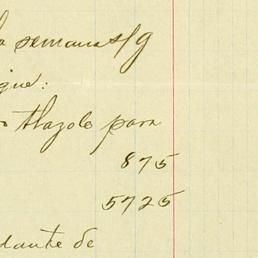 semana s/g
que:
tlazole para
875
5725
dante de